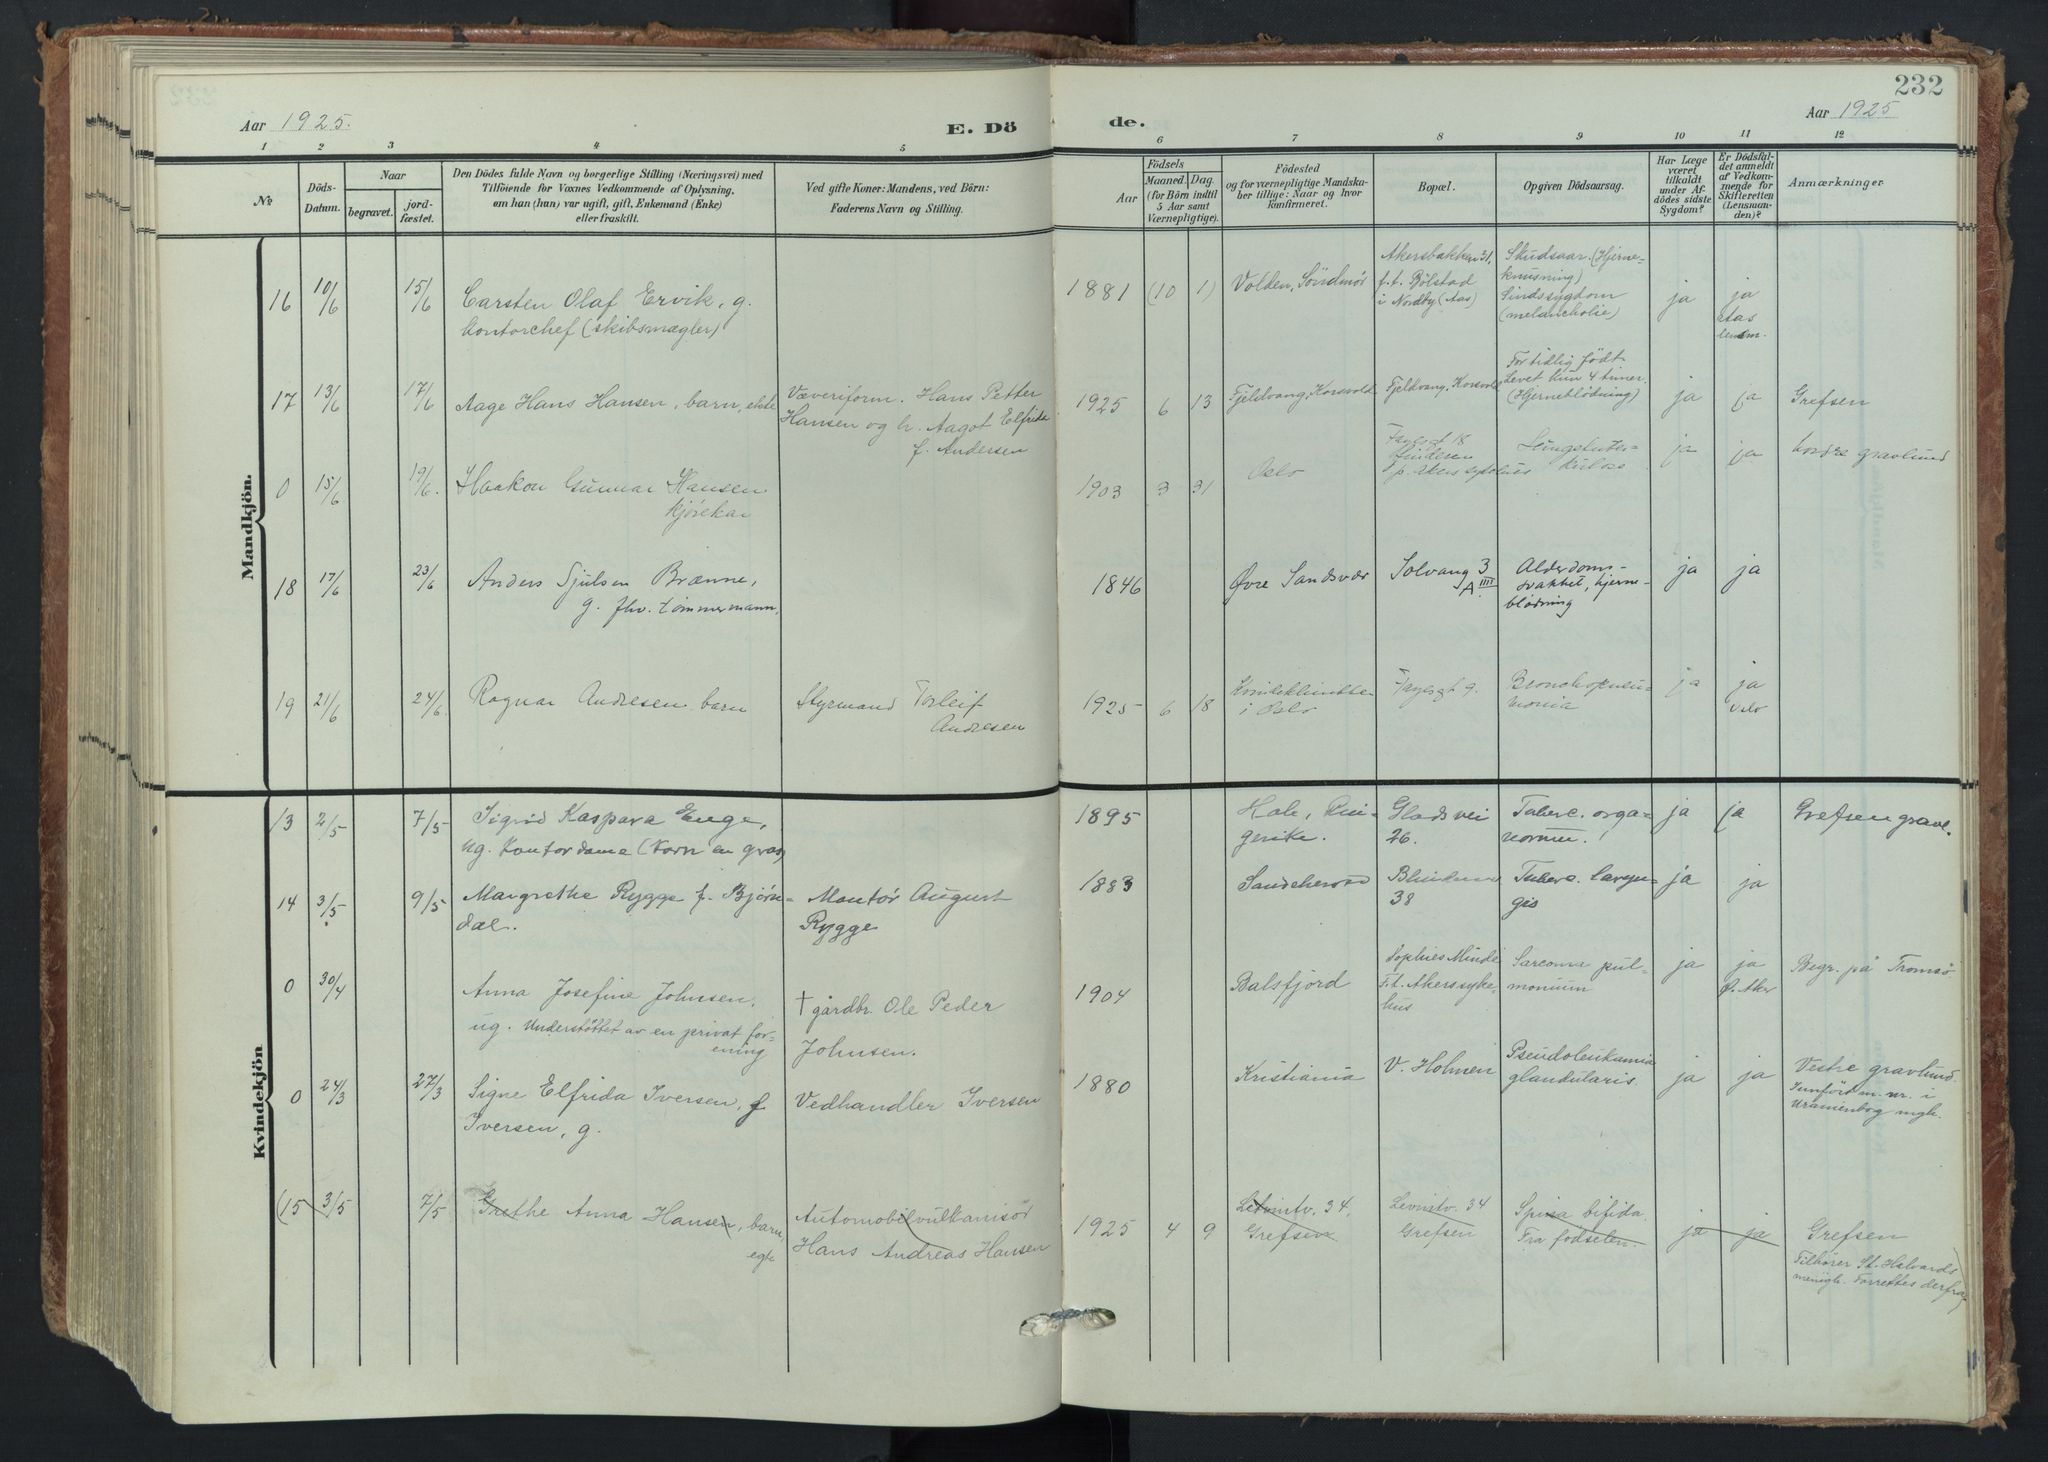 232
Aar 1925.
E. Dö
de.
Aar 1925
1 2 3 4 5 6 7 8 9 10 11 12
№
Döds-
Datum.
Naar
begravet.
jord-
fæstet.
Den Dödes fulde Navn og borgerlige Stilling (Næringsvei) med
Tilföiende for Voxnes Vedkommende af Oplysning,
om han (hun) var ugift, gift, Enkemand (Enke)
eller fraskilt.
Ved gifte Koner: Mandens, ved Börn:
Faderens Navn og Stilling.
Födsels
Aar
Maaned. Dag.
(for Börn indtil
5 Aar samt
Værnepligtige).
Födested
og for værnepligtige Mandska-
ber tillige: Naar og hvor
konfirmeret.
Bopæl.
Opgiven Dödsaarsag.
Har Læge
været
tilkaldt
under Af-
dödes sidste
Sygdom?
Er Dödsfal-
det anmeldt
af Vedkom-
mende for
Skifteretten
(Lensman-
den)?
Anmærkninger
Mandkjön.
16 10/6 15/6
Carsten Olaf Ervik, g.
kontorchef (skibsmægler)
1881 (10 1)
Volden, Søndmør
Akersbakken 31.
f.t. Bjölstad
i Nordby (Aas)
Skudsaar (Hjerne-
knusning)
Sindssygdom
(melancholie)
ja
ja
Aas
lensm.
17 13/6 17/6
Aage Hans Hansen, barn, ekte
Væveriform. Hans Petter
Hansen og h. Aagot Elfrida
f. Andersen
1925 6 13
Fjeldvang, Korsvold
Fjeldvang, Korsvold
For tidlig födt
Levet kun 4 timer.
(Hjerneblödning)
ja ja Grefsen
0 15/6 19/6.
Haakon Gunnar Hansen
kjörekar
1903 3 31
Oslo
18
Lungetuber-
kulose
ja ja nordre gravlund
18 17/6 23/6
Anders Tjulsen Brænne,
g. fhv. tömmermann,
1846
Øvre Sandsvær
Solvang 3
A IIII
Alderdoms-
svakhet, hjerne-
blödning
ja ja
19 21/6 24/6.
Ragnar Andresen, barn
Styrmand Torleif
Andresen
1925 6 18
Kvindeklinikke-
i Oslo
9.
Bronchopneu-
monia
ja ja
Oslo
Kvindekjön
13 2/5 7/5
Sigrid Kaspara Enge,
ug. Kontordame (Korn en gros)
1895
Hole, Rin-
gerike.
Gladsvei
26.
Tuberc. orga-
norum.
ja ja Grefsen gravl.
14 3/5 9/5
Margrethe Rygge f. Bjørn-
dal.
Montør August
Rygge
1883
Sandeherred
Blinken
38
Tuberc. laryn-
gis
ja ja
0 30/4
Anna Josefine Johnsen,
ug. Understöttet av en privat for-
ening
† gårdbr. Ole Peder
Johnsen.
1904
Balsfjord
Sophies Minde
F.t. Akers syke-
hus
Sarcoma pul-
monum
ja ja
Ø. Aker
Begr. på Tromsö
0 24/3 27/3
Signe Elfrida Iversen, f
Iversen, g.
Vedhandler Iversen
1880
Kristiania
V. Holmen
Pseudoleukæmia
glandularis.
ja ja
Vestre gravlund.
Innfört m. nr. i
Uranienbog mgh.
(15 3/5 7/5
Grethe Anna Hansen, barn,
egte
Automobilvulkanisör
Hans Andreas Hansen
1925 4 9
Levintv. 34.
Grefsen
Levintv. 34
Grefsen
Spina bifida.
Fra födselen.
ja ja Grefsen
Tilhörer St. Halvards
menigh. Forrettes derfra)